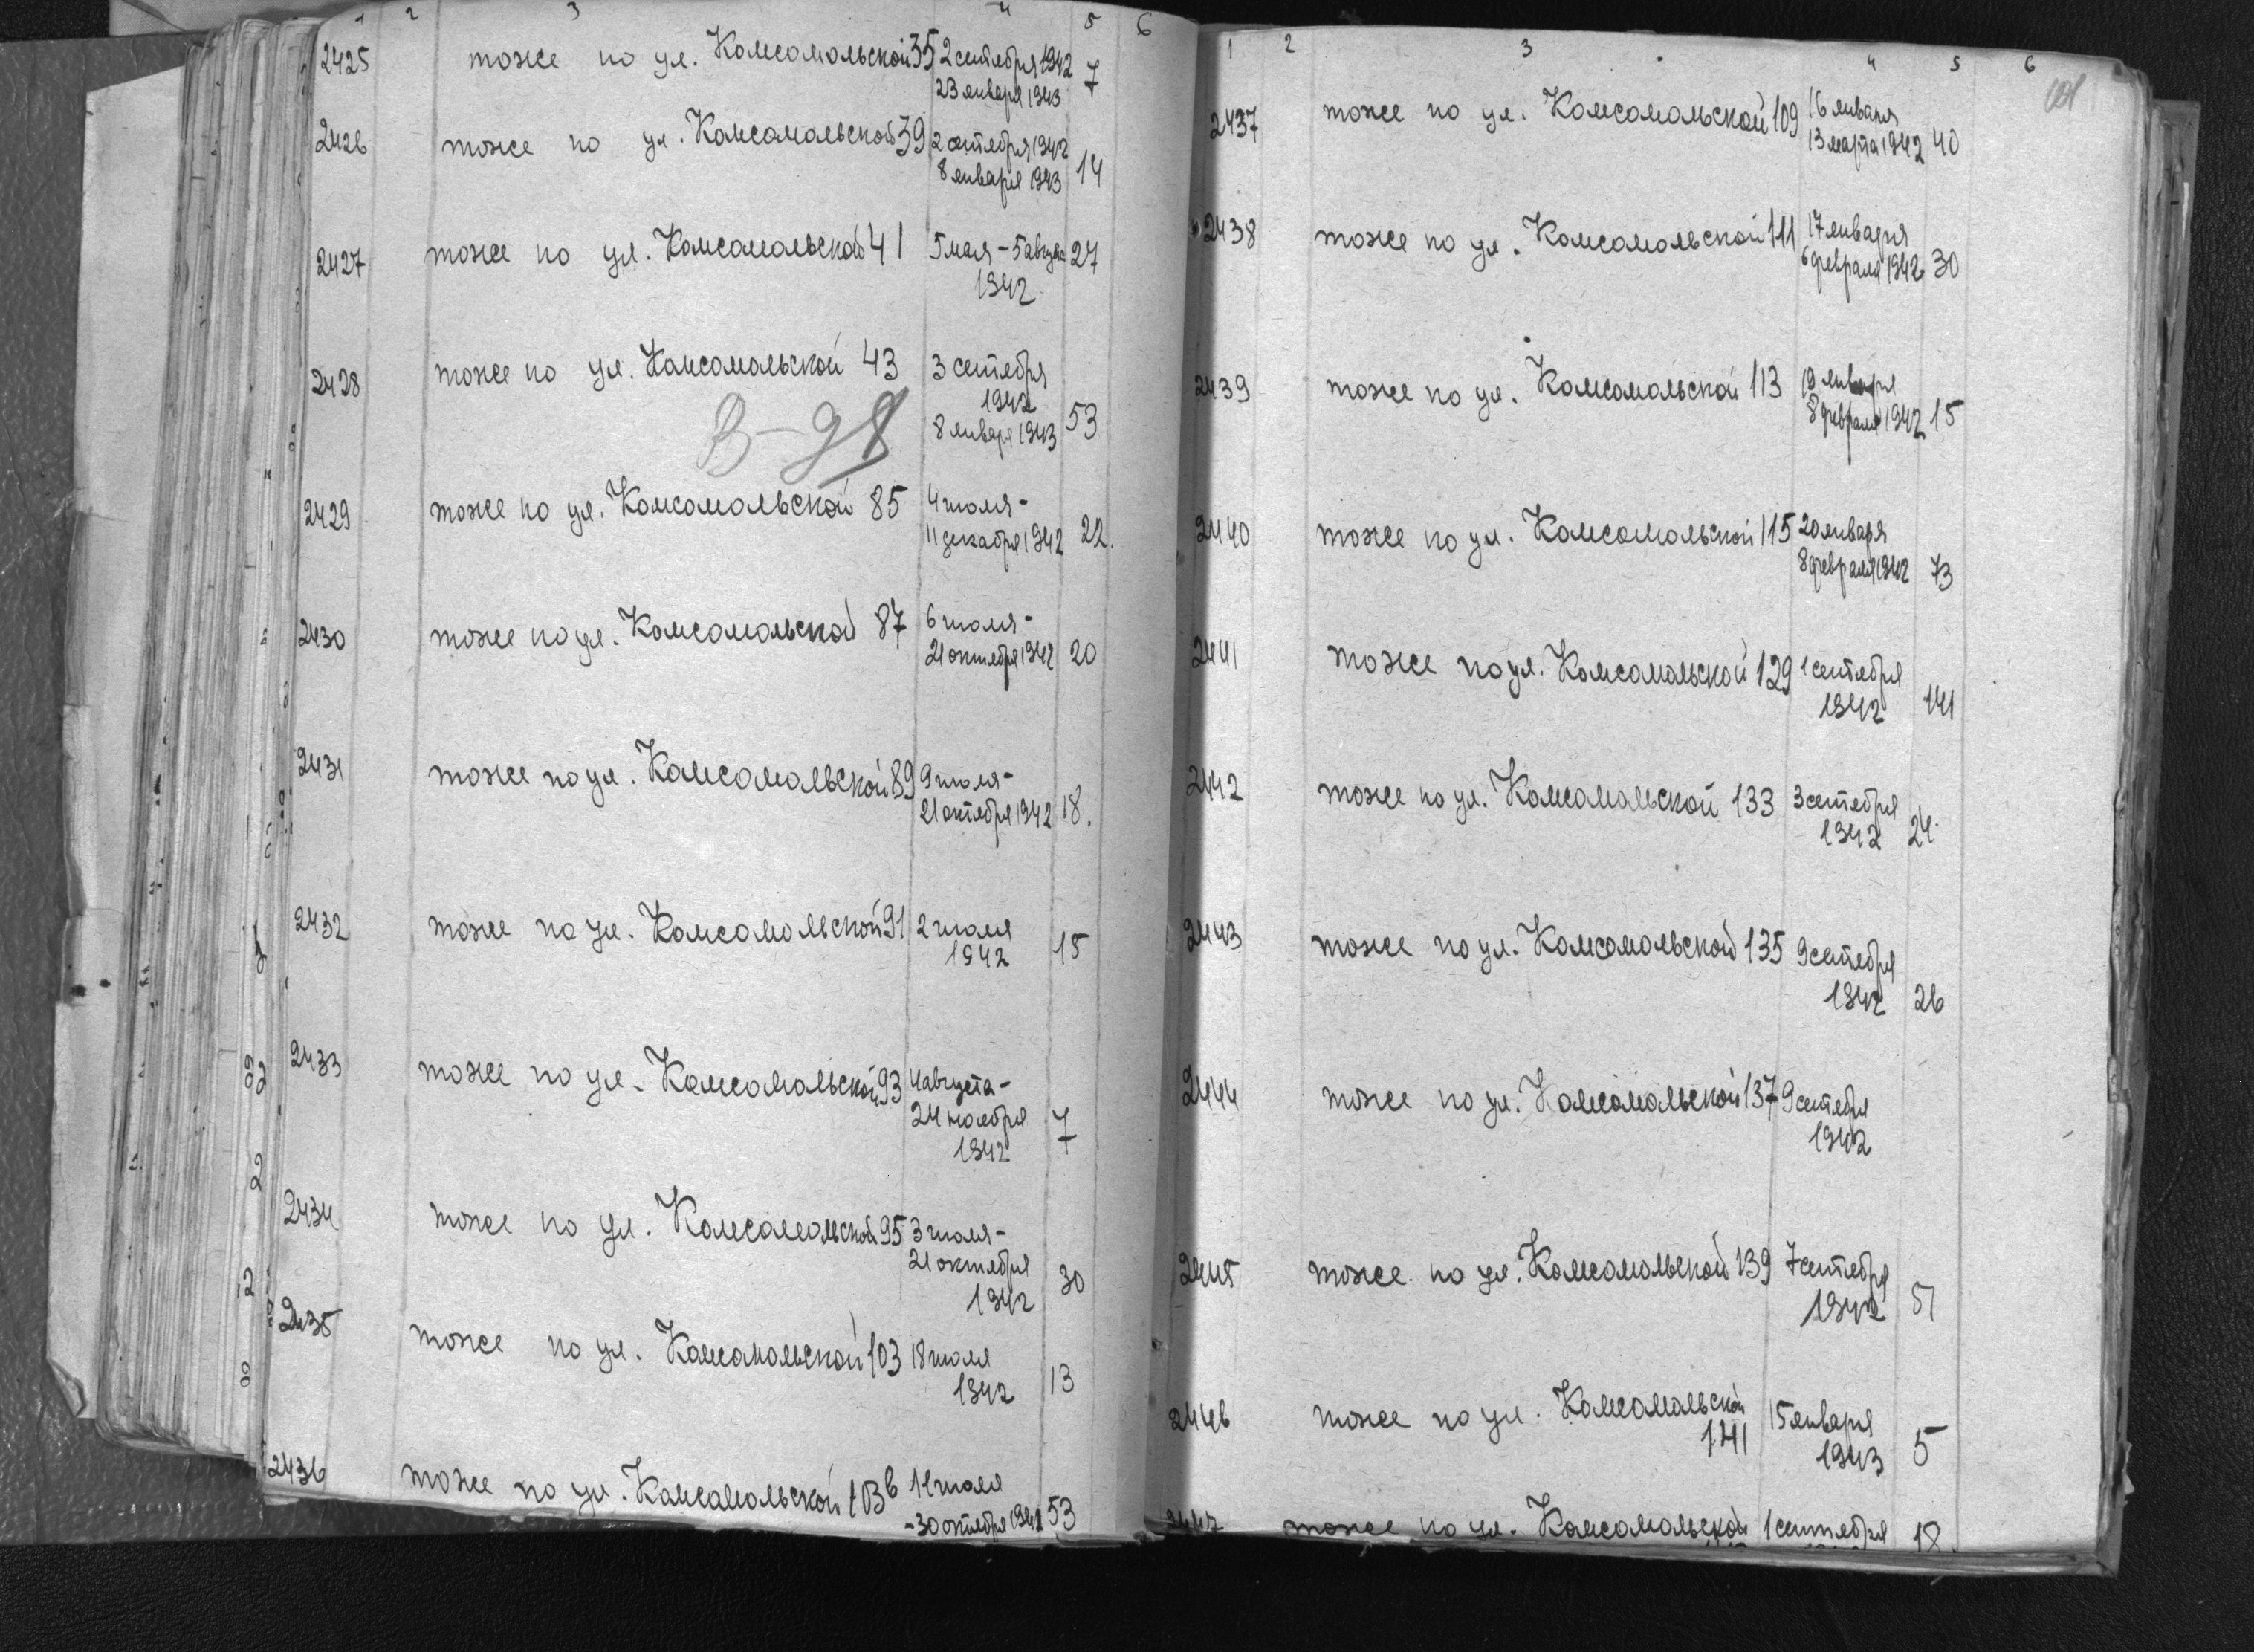 1 2 3 4 5 6
2425 тоже по ул. Комсомольской 35 2 сентября 1942 7
23 января 1943
2426 тоже по ул. Комсомольской 39 2 сентября 1942 14
8 января 1943
2427 тоже по ул. Комсомольской 41 5 мая - 5 августа 27
1942
2428 тоже по ул. Комсомольской 43 3 сентября
1942 53
8 января 1943
В-98
2429 тоже по ул. Комсомольской 85 4 июля -
11 декабря 1942 22.
2430 тоже по ул. Комсомольской 87 6 июля -
21 октября 1942 20
2431 тоже по ул. Комсомольской 89 9 июля -
21 октября 1942 18.
2432 тоже по ул. Комсомольской 91 2 июля
1942 15
2433 тоже по ул. Комсомольской 93 4 августа -
24 ноября 7
1942
2434 тоже по ул. Комсомольской 95 3 июля -
21 октября 30
1942
2435 тоже по ул. Комсомольской 103 18 июля
1942 13
2436 тоже по ул. Комсомольской 103в 14 июля
- 30 октября 1942 53
1 2 3 4 5 6
2437 тоже по ул. Комсомольской 109 16 января
13 марта 1942 40
2438 тоже по ул. Комсомольской 111 17 января
6 февраля 1942 30
2439 тоже по ул. Комсомольской 113 19 января
8 февраля 1942 15
2440 тоже по ул. Комсомольской 115 20 января
8 февраля 1942 73
2441 тоже по ул. Комсомольской 129 1 сентября
1942 141
2442 тоже по ул. Комсомольской 133 3 сентября
1942 24.
2443 тоже по ул. Комсомольской 135 9 сентября
1942 26
2444 тоже по ул. Комсомольской 137 9 сентября
1942
2445 тоже по ул. Комсомольской 139 7 сентября
1942 51
2446 тоже по ул. Комсомольской 15 января
141 1943 5
2447 тоже по ул. Комсомольской 1 сентября 18.